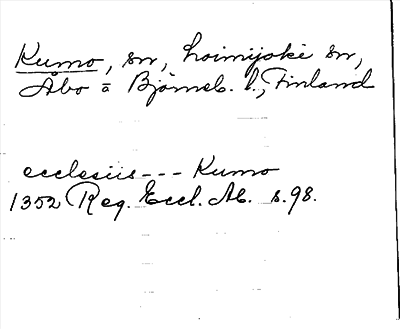 Kumo, sn, Loimijoki sn,
Åbo o Björneb. l., Finland
ecclesiis --- Kumo
1352 Reg. Eccl. Ab. s. 98.